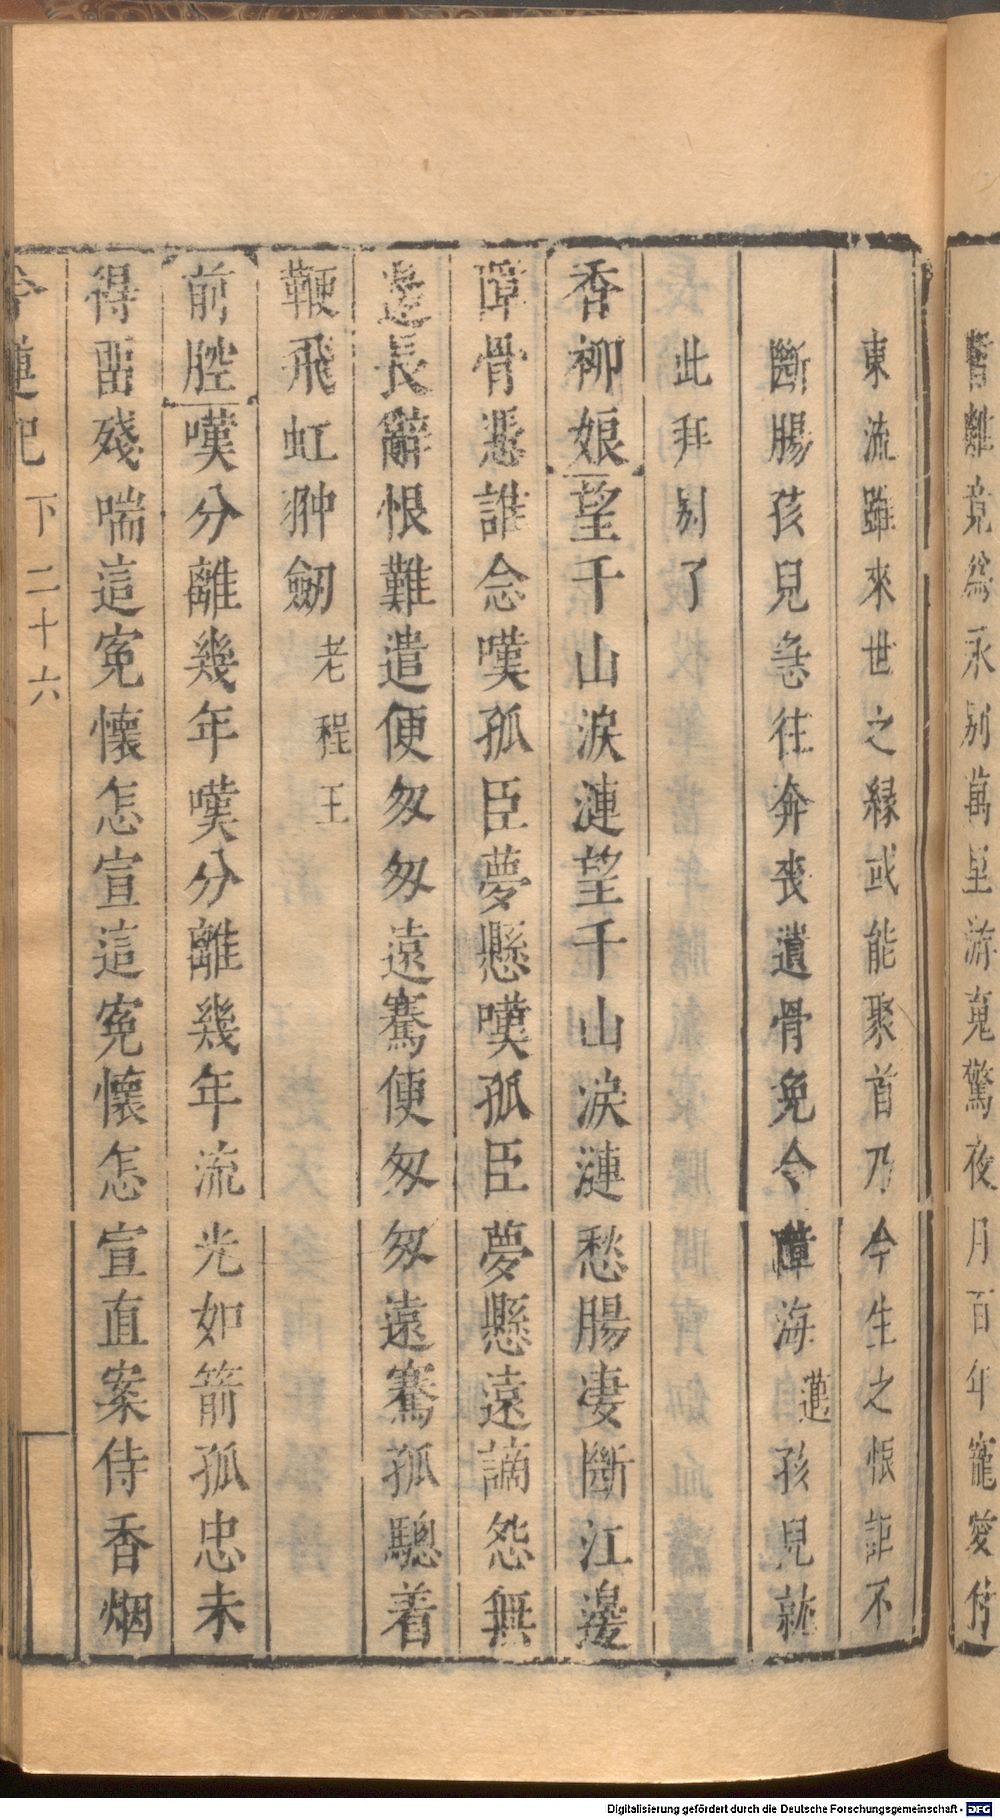 舊離竟爲永别萬里游䰟驚夜月百年寵愛付
東流雖來世之緣或能聚首乃今生之恨詎不
斷腸孩兒急往奔喪遺骨免今瘴海邁孩兒就
此拜别了
香柳娘望千山淚漣望千山淚漣愁腸凄斷江邊
瘴骨憑誰念嘆孤臣夢懸嘆孤臣夢懸遠謫怨無
邊長辭恨難遣便匆匆遠騫便匆匆遠騫孤驄着
鞭飛虹翀劒老程王
前腔嘆分離幾年嘆分離幾年流光如箭孤忠未
得畱殘喘這寃懷怎宣這寃懷怎宣直案侍香烟
蓮記 下二十六
Digitalisierung gefördert durch die Deutsche Forschungsgemeinschaft - DFG